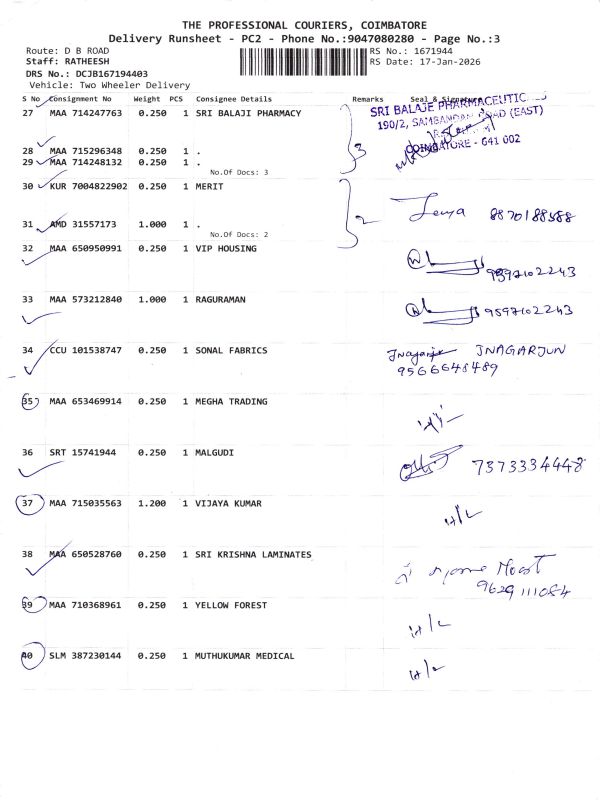 THE PROFESSIONAL COURIERS, COIMBATORE
Delivery Runsheet - PC2 - Phone No.:9047080280 - Page No.:3
Route: D B ROAD RS No.: 1671944
Staff: RATHEESH RS Date: 17-Jan-2026
DRS No.: DCJB167194403
Vehicle: Two Wheeler Delivery
S No Consignment No Weight PCS Consignee Details Remarks Seal & Signature
27 MAA 714247763 0.250 1 SRI BALAJI PHARMACY
SRI BALAJE PHARMACEUTIC
190/2, SAMBANDAM ROAD (EAST)
COIMBATORE - 641 002
28 MAA 715296348 0.250 1 .
29 MAA 714248132 0.250 1 . 3
No.Of Docs: 3
30 KUR 7004822902 0.250 1 MERIT
31 AMD 31557173 1.000 1 . 2 8870188588
No.Of Docs: 2
32 MAA 650950991 0.250 1 VIP HOUSING 9597102243
33 MAA 573212840 1.000 1 RAGURAMAN 9597102243
34 CCU 101538747 0.250 1 SONAL FABRICS JNAGARJUN
9566648489
35 MAA 653469914 0.250 1 MEGHA TRADING
36 SRT 15741944 0.250 1 MALGUDI 7373334448
37 MAA 715035563 1.200 1 VIJAYA KUMAR H/L
38 MAA 650528760 0.250 1 SRI KRISHNA LAMINATES
9629111084
39 MAA 710368961 0.250 1 YELLOW FOREST H/L
40 SLM 387230144 0.250 1 MUTHUKUMAR MEDICAL H/L